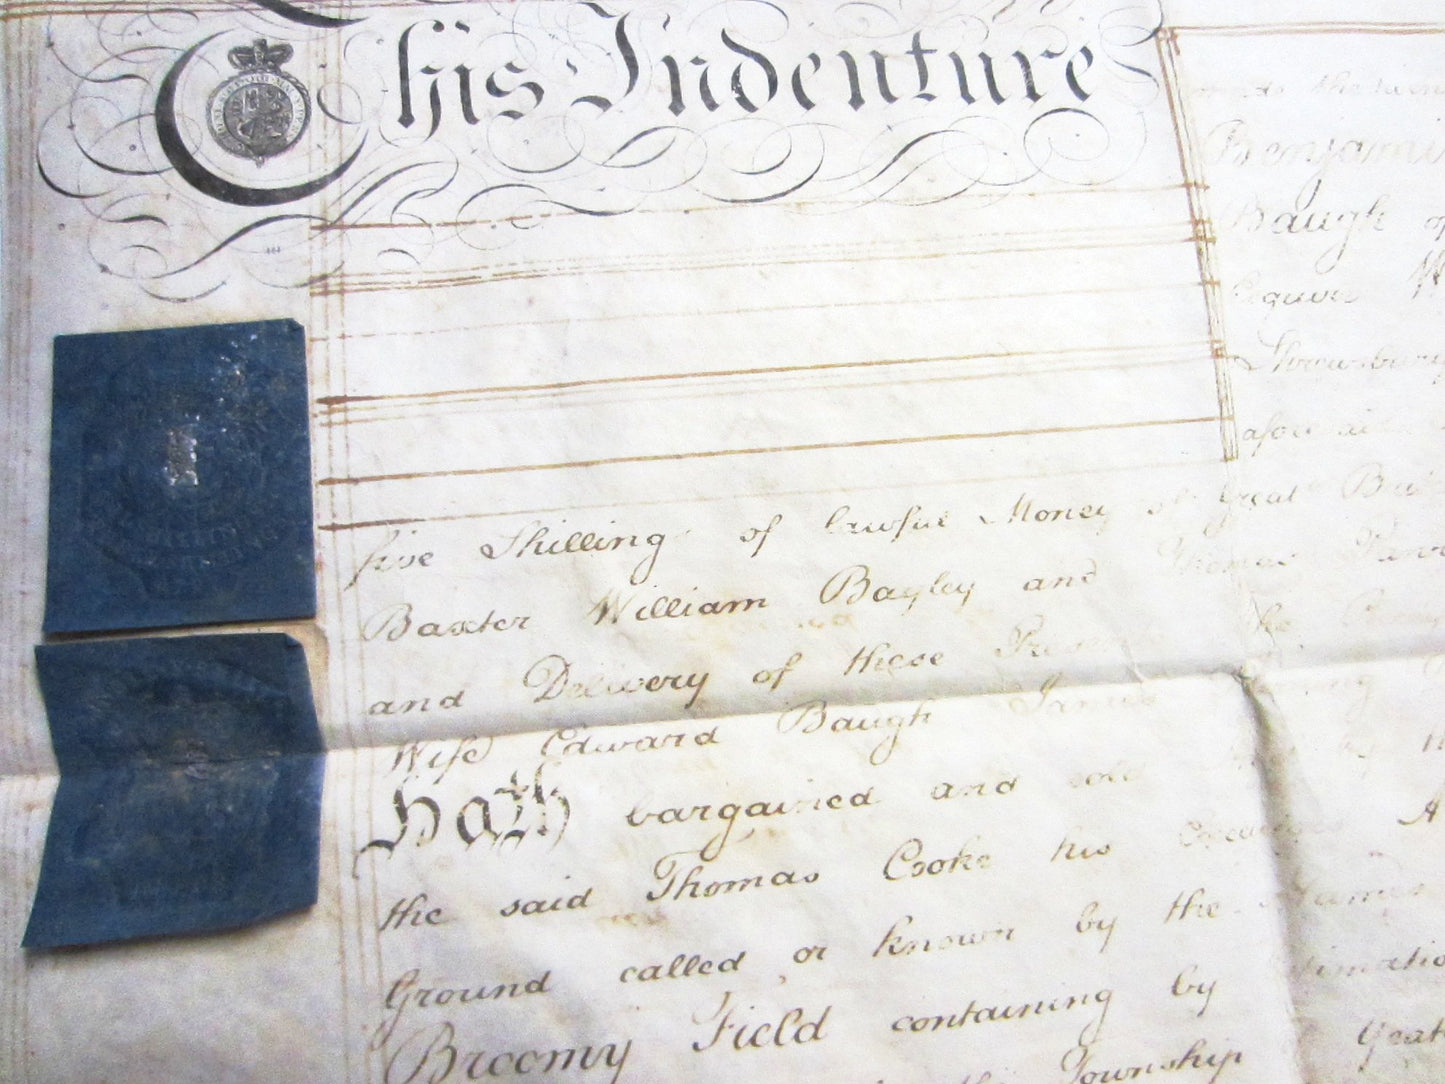 This Indenture
made the
Benjami
Baugh of
Esquire W
Shrewsbury
aforesaid
five Shillings of lawful Money of Great Bri
Baxter William Bagley and Thomas
and Delivery of these Presents the
Wife Edward Baugh James
Hath bargained and sold
the said Thomas Cooke his Executors A
Ground called or known by the Names
Broomy Field containing by
Township